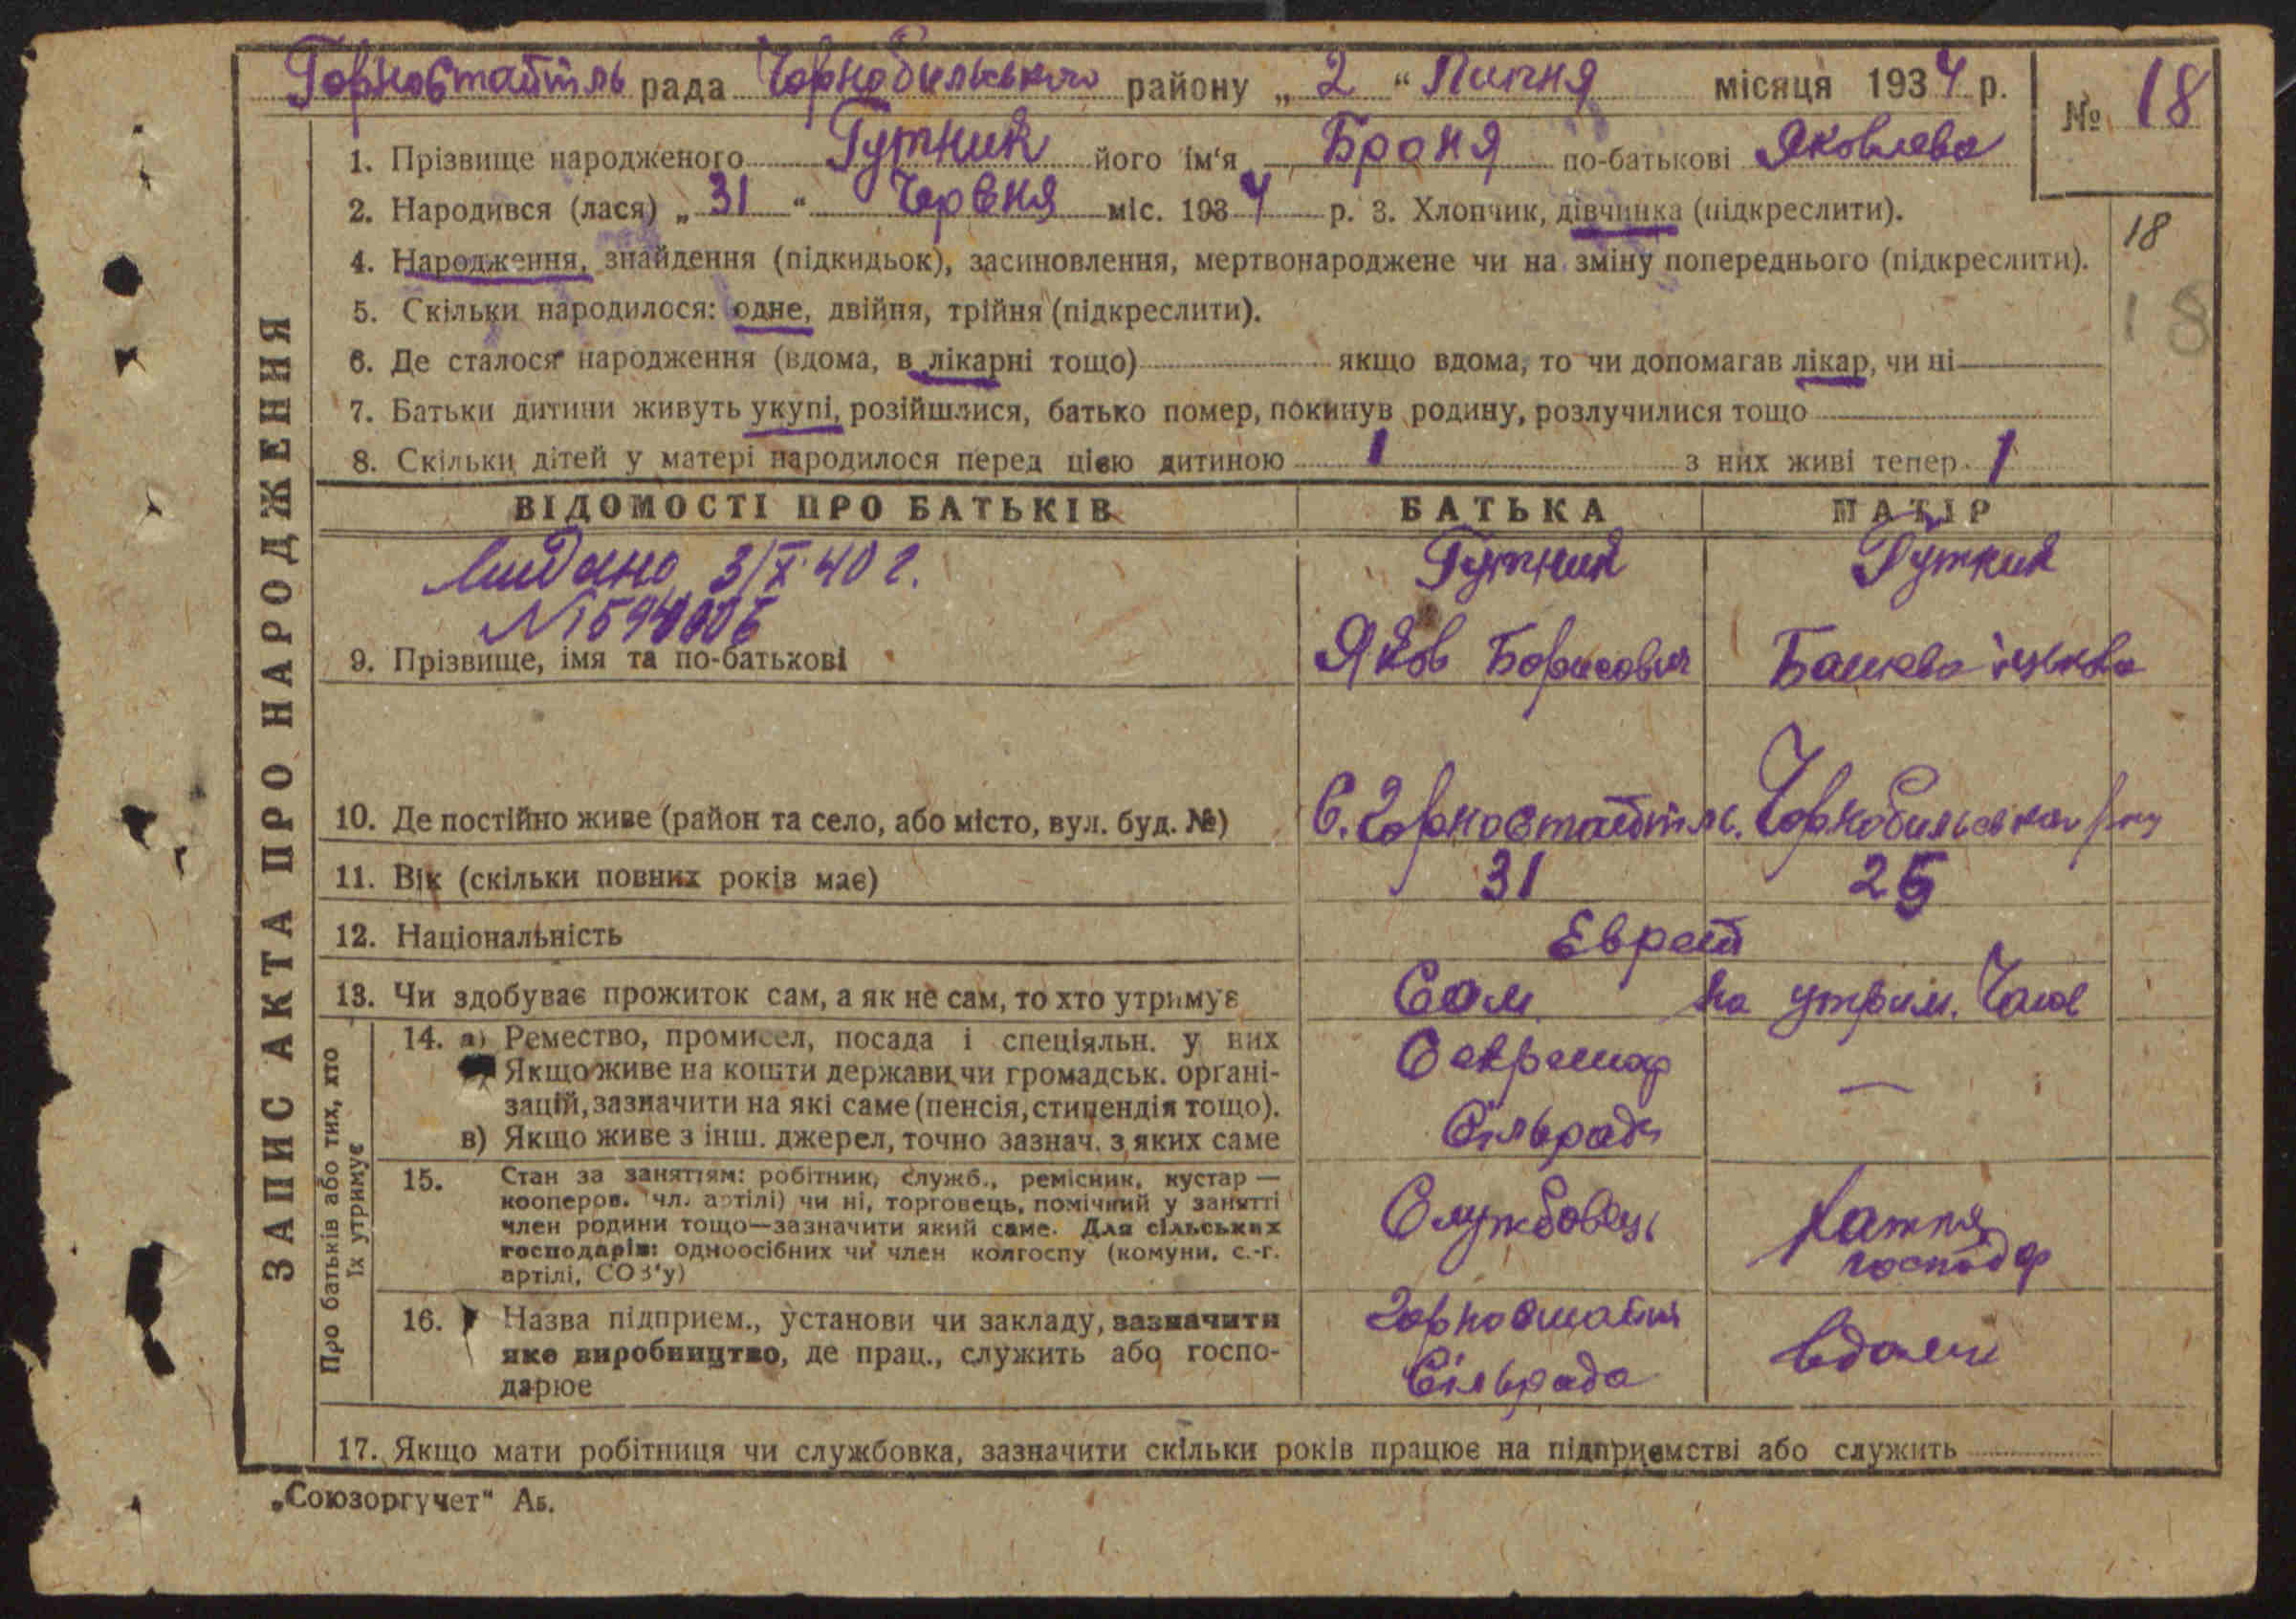 Горностайпіль рада Чорнобильського району „ 2 “ Липня місяця 1934 р.
№ 18
1. Прізвище народженого Гутник його ім'я Броня по-батькові Яковлева
2. Народився (лася) „ 31 “ Червня міс. 1934 р. 3. Хлопчик, дівчинка (підкреслити).
18
4. Народження, знайдення (підкидьок), засиновлення, мертвонароджене чи на зміну попереднього (підкреслити).
5. Скільки народилося: одне, двійня, трійня (підкреслити).
18
6. Де сталося народження (вдома, в лікарні тощо) якщо вдома, то чи допомагав лікар, чи ні
7. Батьки дитини живуть укупі, розійшлися, батько помер, покинув родину, розлучилися тощо
8. Скільки дітей у матері народилося перед цією дитиною 1 з них живі тепер 1
ЗАПИС АКТА ПРО НАРОДЖЕННЯ
ВІДОМОСТІ ПРО БАТЬКІВ БАТЬКА МАТІР
3/X 40 г.
Гутник Гутник
9. Прізвище, імя та по-батькові Яков Борисович
10. Де постійно живе (район та село, або місто, вул. буд. №) С. Горностайпіль. Чорнобильського р-ну
11. Вік (скільки повних років має) 31 25
12. Національність Еврей
13. Чи здобуває прожиток сам, а як не сам, то хто утримує Сам на утрим. Чолов
Про батьків або тих, хто їх утримує
14. а) Ремество, промисел, посада і спеціяльн. у них
Якщо живе на кошти держави чи громадськ. органі-
зацій, зазначити на які саме (пенсія, стипендія тощо).
в) Якщо живе з інш. джерел, точно зазнач. з яких саме
Секретар —
Сільради
15. Стан за заняттям: робітник, служб., ремісник, кустар —
кооперов. (чл. артілі) чи ні, торговець, помічний у занятті
член родини тощо—зазначити який саме. Для сільських
господарів: одноосібних чи член колгоспу (комуни, с.-г.
артілі, СОЗ'у)
Службовець Хатня
господар
16. Назва підприєм., установи чи закладу, зазначити
яке виробництво, де прац., служить або госпо-
дарює
Горностайпіл
Сільрада вдома
17. Якщо мати робітниця чи службовка, зазначити скільки років працює на підприємстві або служить
„Союзоргучет“ Аб.